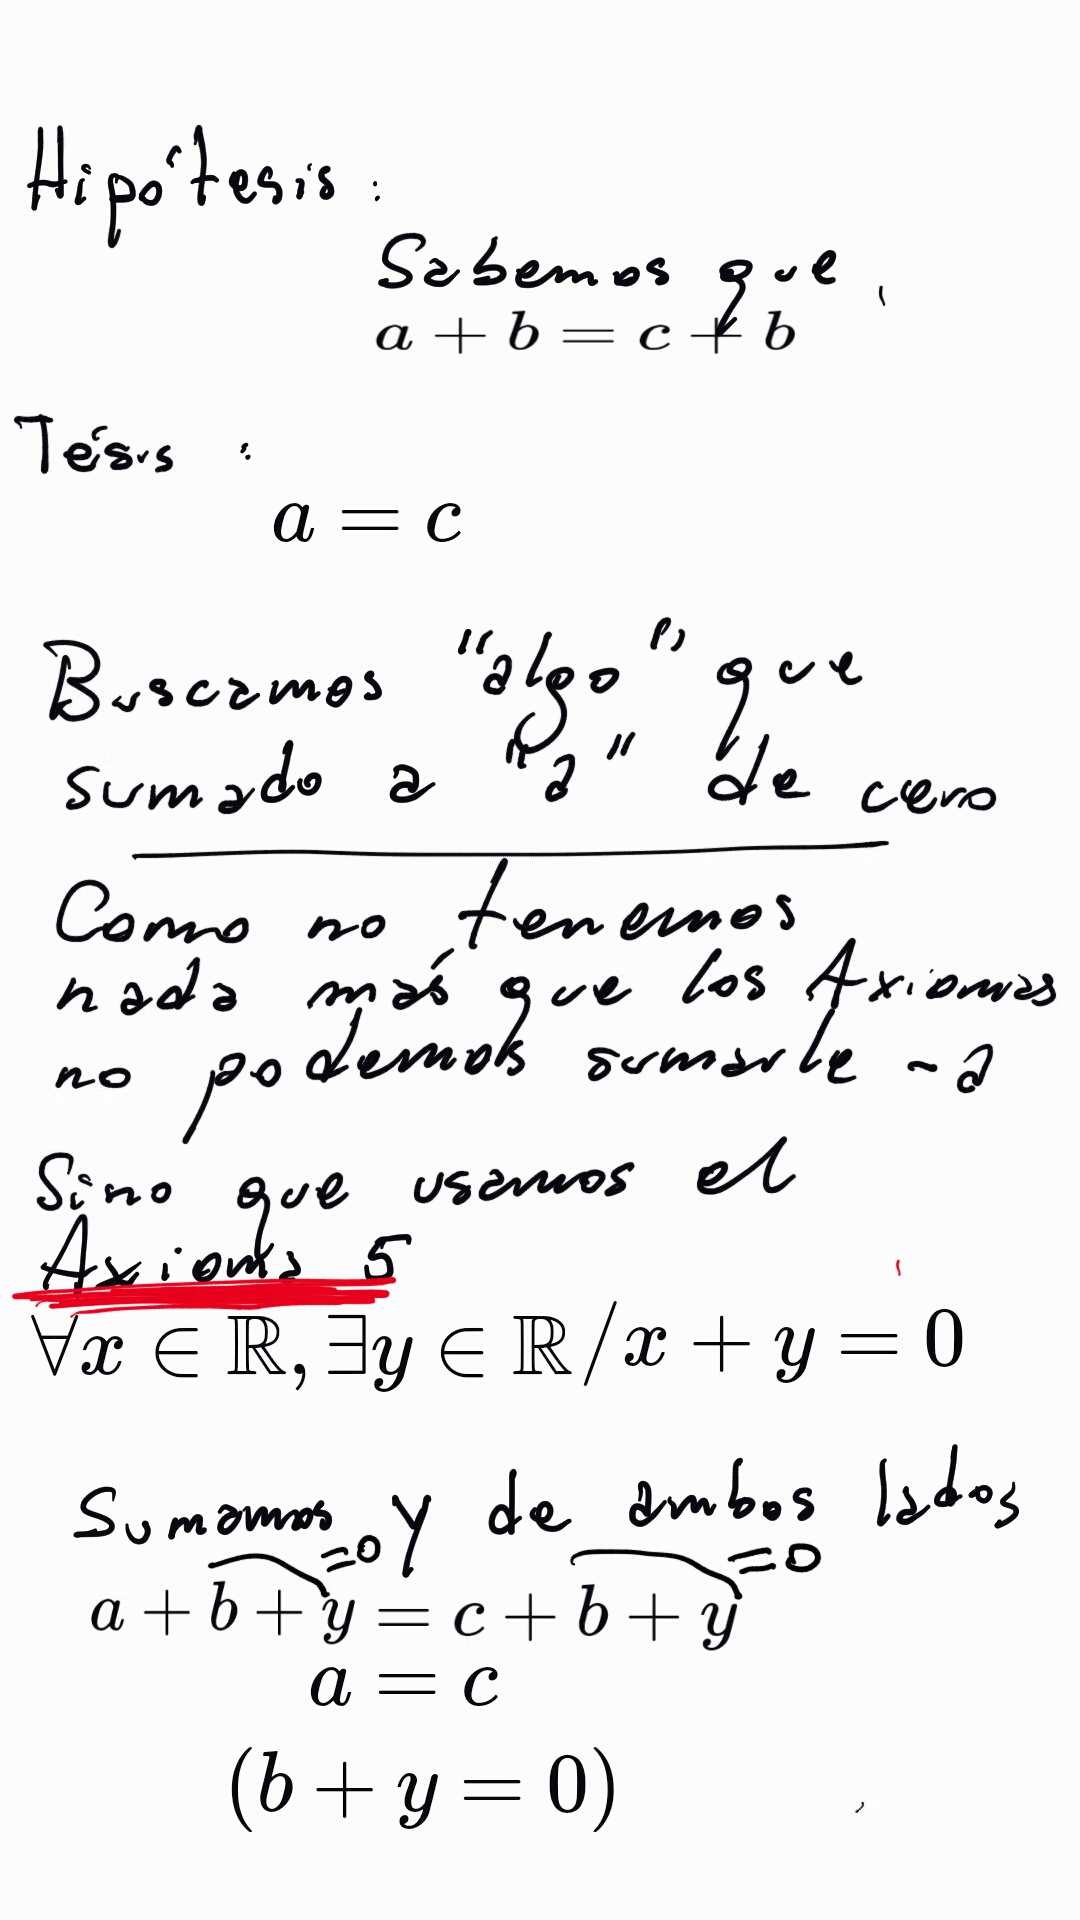 Hipótesis:
Sabemos que
a + b = c + b
Tésis :
a = c
Buscamos "algo" que
sumado a "a" de cero
Como no tenemos
nada más que los Axiomas
no podemos sumarle -a
Sino que usamos el
Axioma 5
∀x ∈ ℝ, ∃y ∈ ℝ/x + y = 0
Sumamos y de ambos lados
=0 =0
a + b + y = c + b + y
a = c
(b + y = 0)